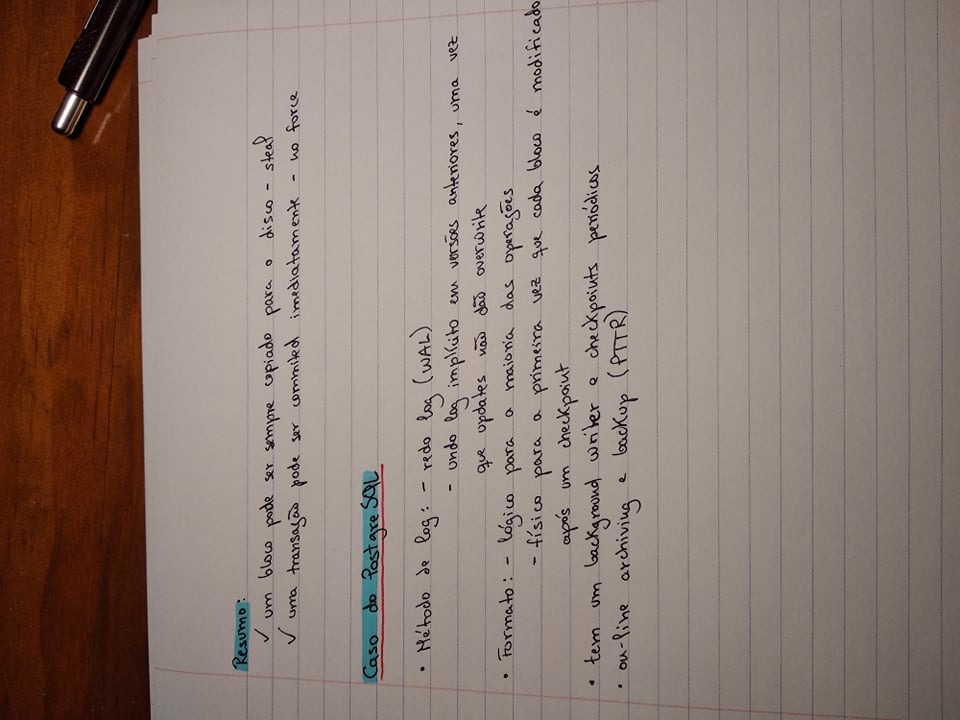 Resumo:
✓ um bloco pode ser sempre copiado para o disco - steal
✓ uma transação pode ser commited imediatamente - no force
Caso do PostgreSQL
• Método de log: - redo log (WAL)
- undo log implícito em versões anteriores, uma vez
que updates não dão overwrite
• Formato: - lógico para a maioria das operações
- físico para a primeira vez que cada bloco é modificado
após um checkpoint
• tem um background writer e checkpoints periódicos
• on-line archiving e backup (PTTR)